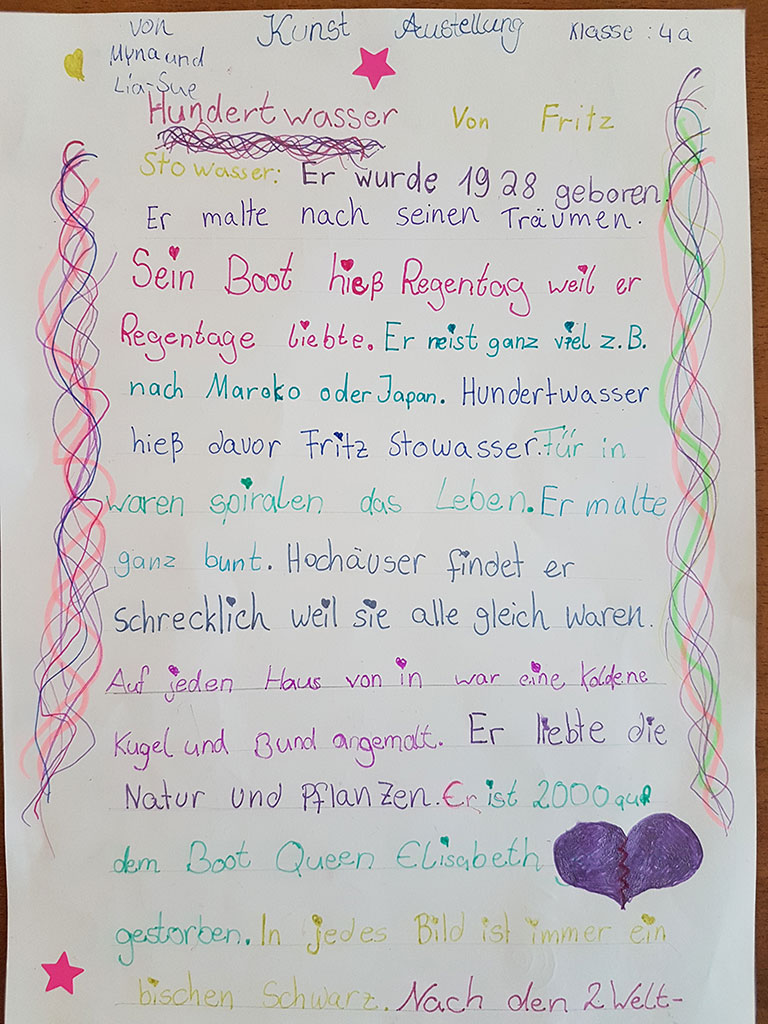 von Kunst Austellung Klasse: 4a
Myna und
Lia-Sue
Hundertwasser Von Fritz
Stowasser: Er wurde 1928 geboren.
Er malte nach seinen Träumen.
Sein Boot hieß Regentag weil er
Regentage liebte. Er reist ganz viel z.B.
nach Maroko oder Japan. Hundertwasser
hieß davor Fritz Stowasser. Für in
waren spiralen das Leben. Er malte
ganz bunt. Hochäuser findet er
schrecklich weil sie alle gleich waren.
Auf jeden Haus von in war eine Koldene
Kugel und Bund angemalt. Er liebte die
Natur und Pflanzen. Er ist 2000 auf
dem Boot Queen Elisabeth
gestorben. In jedes Bild ist immer ein
bischen Schwarz. Nach den 2 Welt-